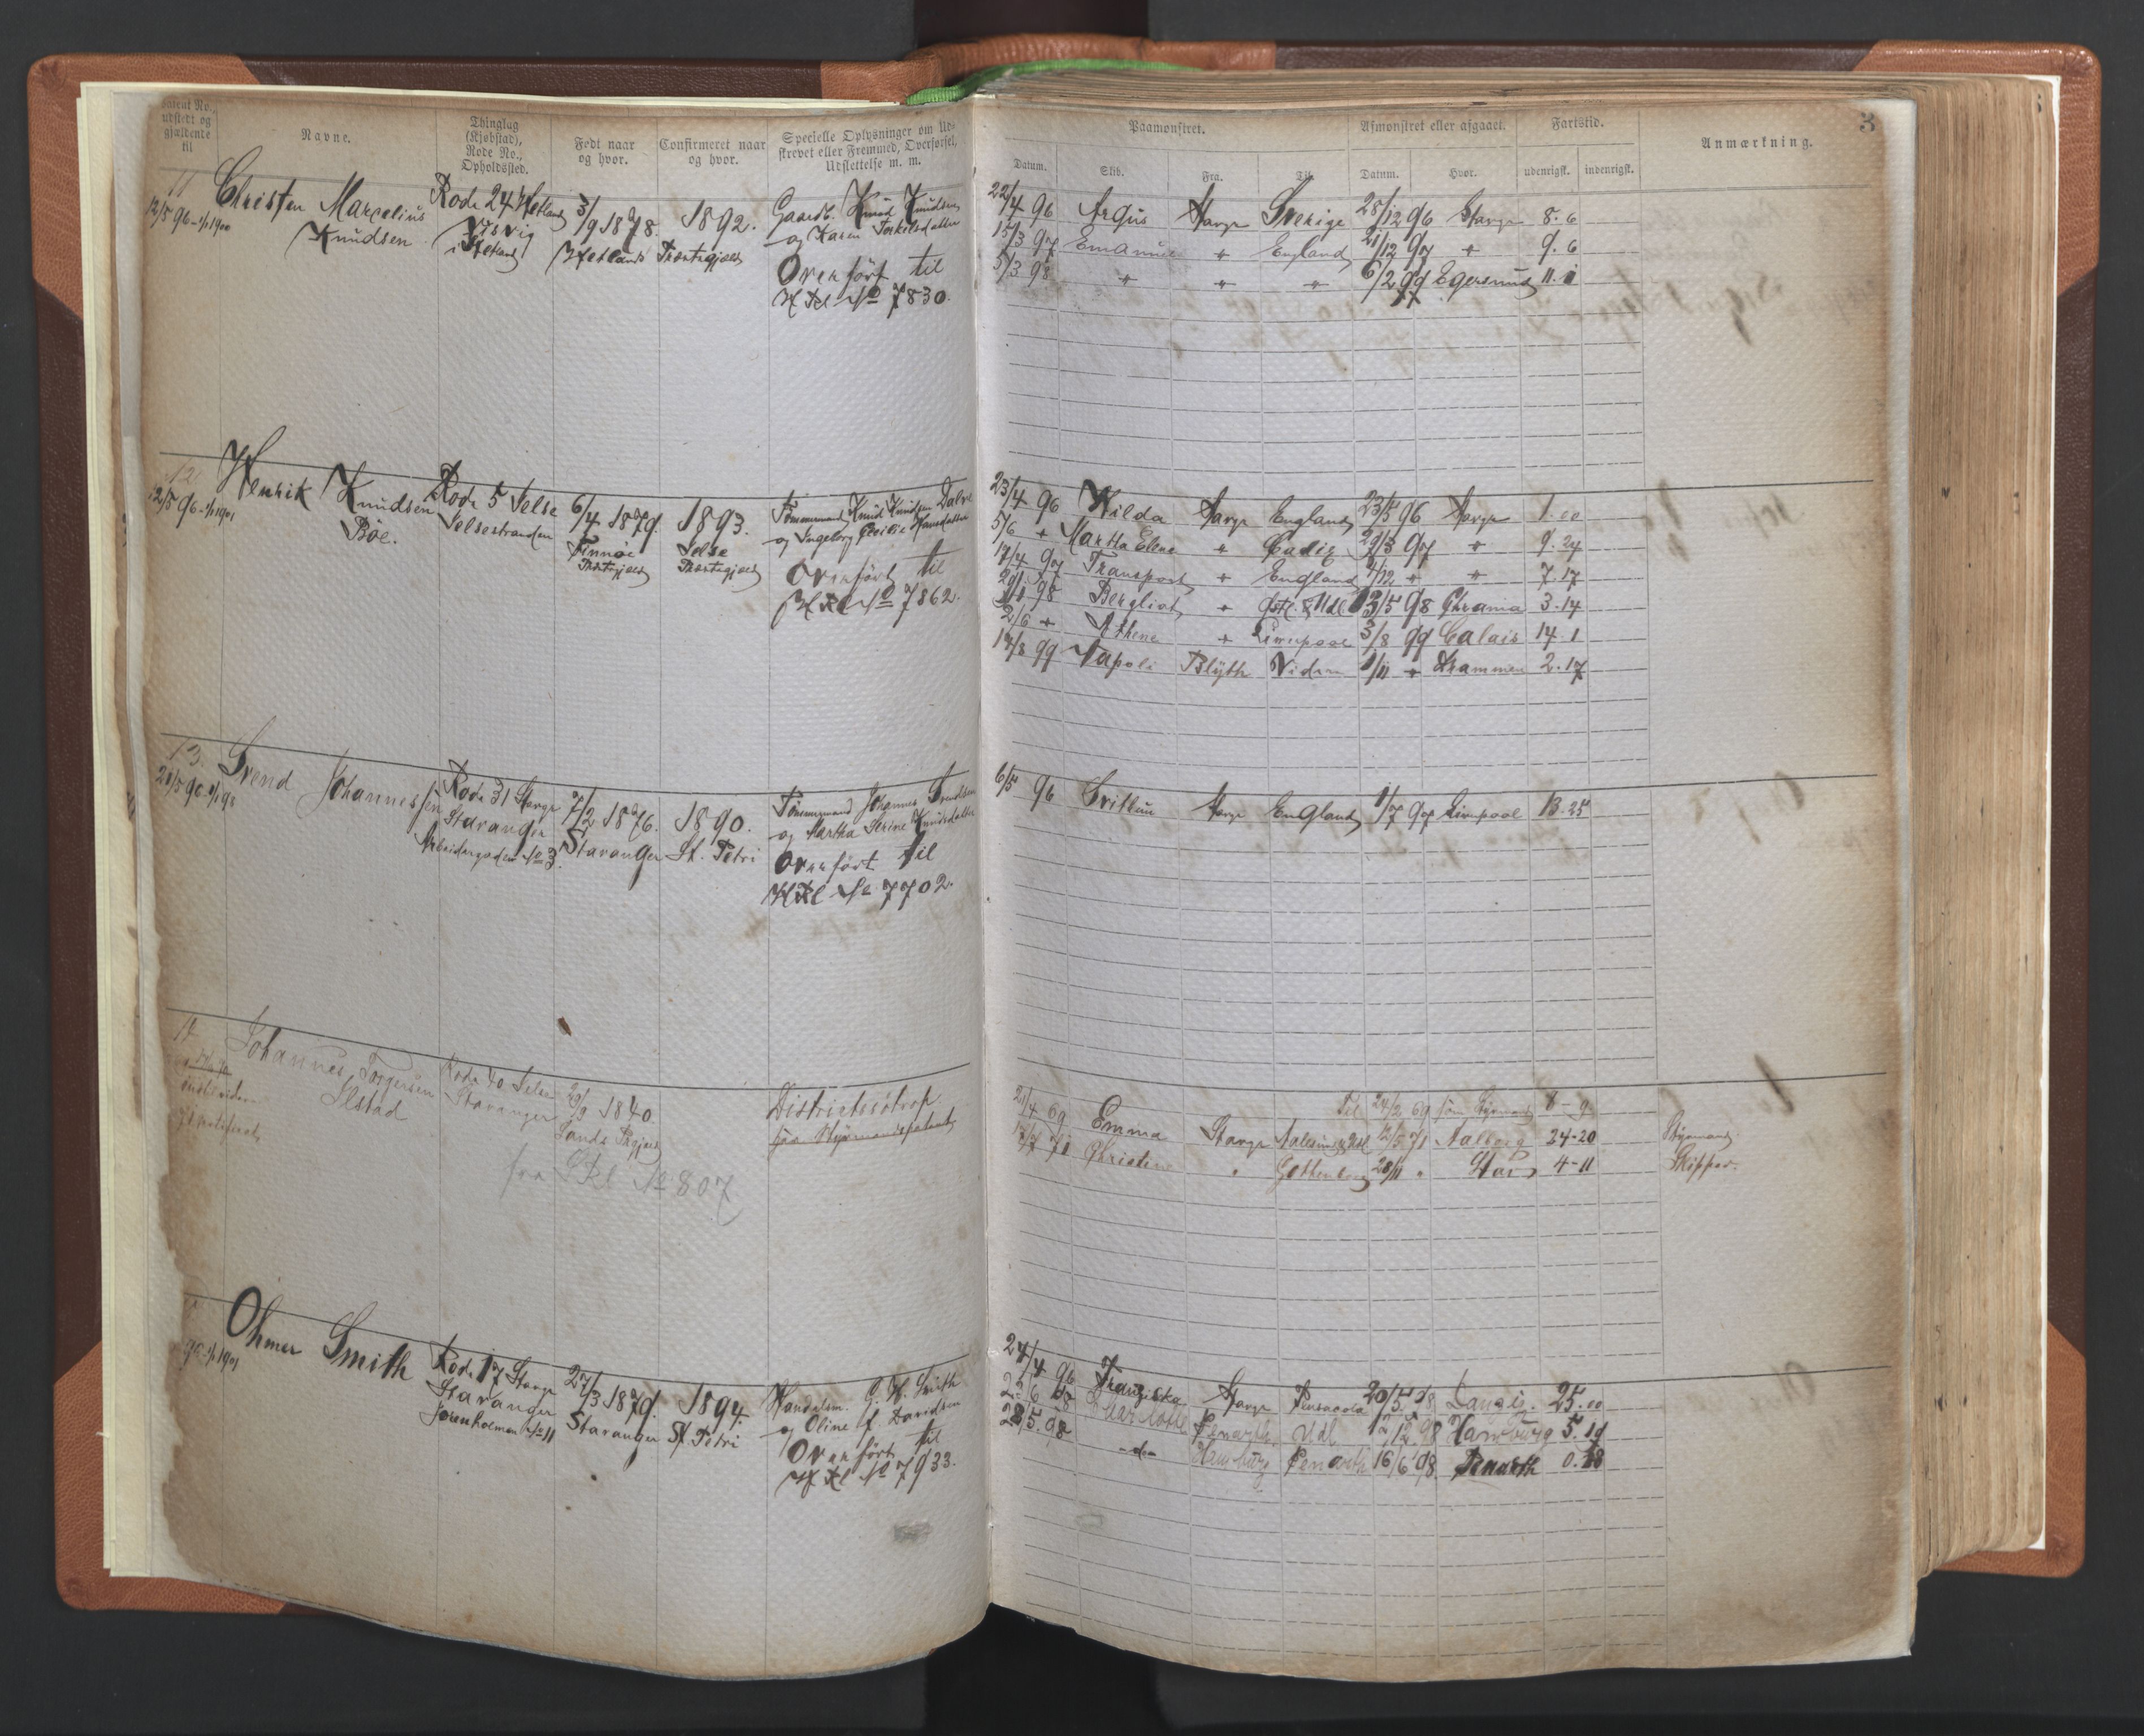 Patent No., udstedt og gjældende til
Navne.
Thinglag (Kjøbstad), Rode No., Opholdssted.
Født naar og hvor.
Confirmeret naar og hvor.
Specielle Oplysninger om Udskrevet eller Fremmed, Overførsel, Udslettelse m. m.
11
12/5 96 - 1/1 1900
Christen Marcelius
Knudsen
Rode 24 Hetland
i Hetland
3/9 1878.
Hetlands Præstegjæld
1892.
Gaardb. Knud Knudsen
og Karen Torkelsdatter
Overført til
H Rl No 7830.
12
12/5 96 - 1/1 1901
Henrik Knudsen
Bøe.
Rode 5 Jelse
Jelsestranden
6/4 1879.
Finnøe
Præstegjæld
1893.
Jelse
Præstegjæld
Tømmermand Knud Knudsen Dalve
og Ingeborg Cecilie Hansdatter
Overført til
H Rl No 7862.
13.
21/5 96 - 1/1 98
Svend Johannessen
Rode 31 Stavgr
Stavanger
Arbeidergaden No 3.
7/2 1876.
Stavanger
1890.
St. Petri
Tømmermand Johannes Svendsen
og Martha Serine Knudsdatter
Overført til
H Rl No 7702.
14
Johannes Torgersen
Ilstad
Rode 40 Jelse
Stavanger
29/9 1840
Sands Prgjæld
fra S Rl No 807
Districtssstrop.
paa Styrmandspatent
96 - 1/1 1901
Ohmer Smith
Rode 17 Stavgr
Stavanger
Jorenholmen No 11
27/3 1879.
Stavanger
1894.
St. Petri
Handelsm. G. H. Smith
og Oline f. Davidsen
Overført til
H Rl No 7933.
3
Paamønstret.
Afmønstret eller afgaaet.
Fartstid.
Anmærkning.
Datum. Skib. Fra. Til. Datum. Hvor. udenrigsk. indenrigsk.
22/4 96 Argus Stavgr Sverige 28/12 96 Stavgr 8. 6
15/3 97 Emanuel " England 21/12 97 " 9. 6
5/3 98 " " " 6/2 99 Egersund 11. 1
23/4 96 Hilda Stavgr England 23/5 96 Stavgr 1. 00
5/6 " Martha Elene " Cadiz 29/3 97 " 9. 24
17/4 97 Transport " England 4/12 " " 7. 17
98 Bergliot " Udl /5 98 Chrania 3. 14
2/6 " Athene " Liverpool 3/8 99 Calais 14. 1
14/8 99 Napoli Blyth Vidre 1/11 " Drammen 2. 17
6/5 96 Stavgr England 1/7 97 Liverpool 13. 25
Til 24/2 69 som Styrmand 8 - 9
21/4 69 Emma Stavgr 12/5 71 Aalborg 24 - 20 Styrmand
17/7 71 Christine " Gøttenborg 28/11 " Stav 4 - 11 Skipper
24/4 96 Franziska Stavgr Pensacola 20/5 98 Danzig. 25. 00
Penarth Udl /12 98 Hamburg 5. 19
28/5. 98 - do - Hamburg Penarth 16/6 98 Penarth 0. 18